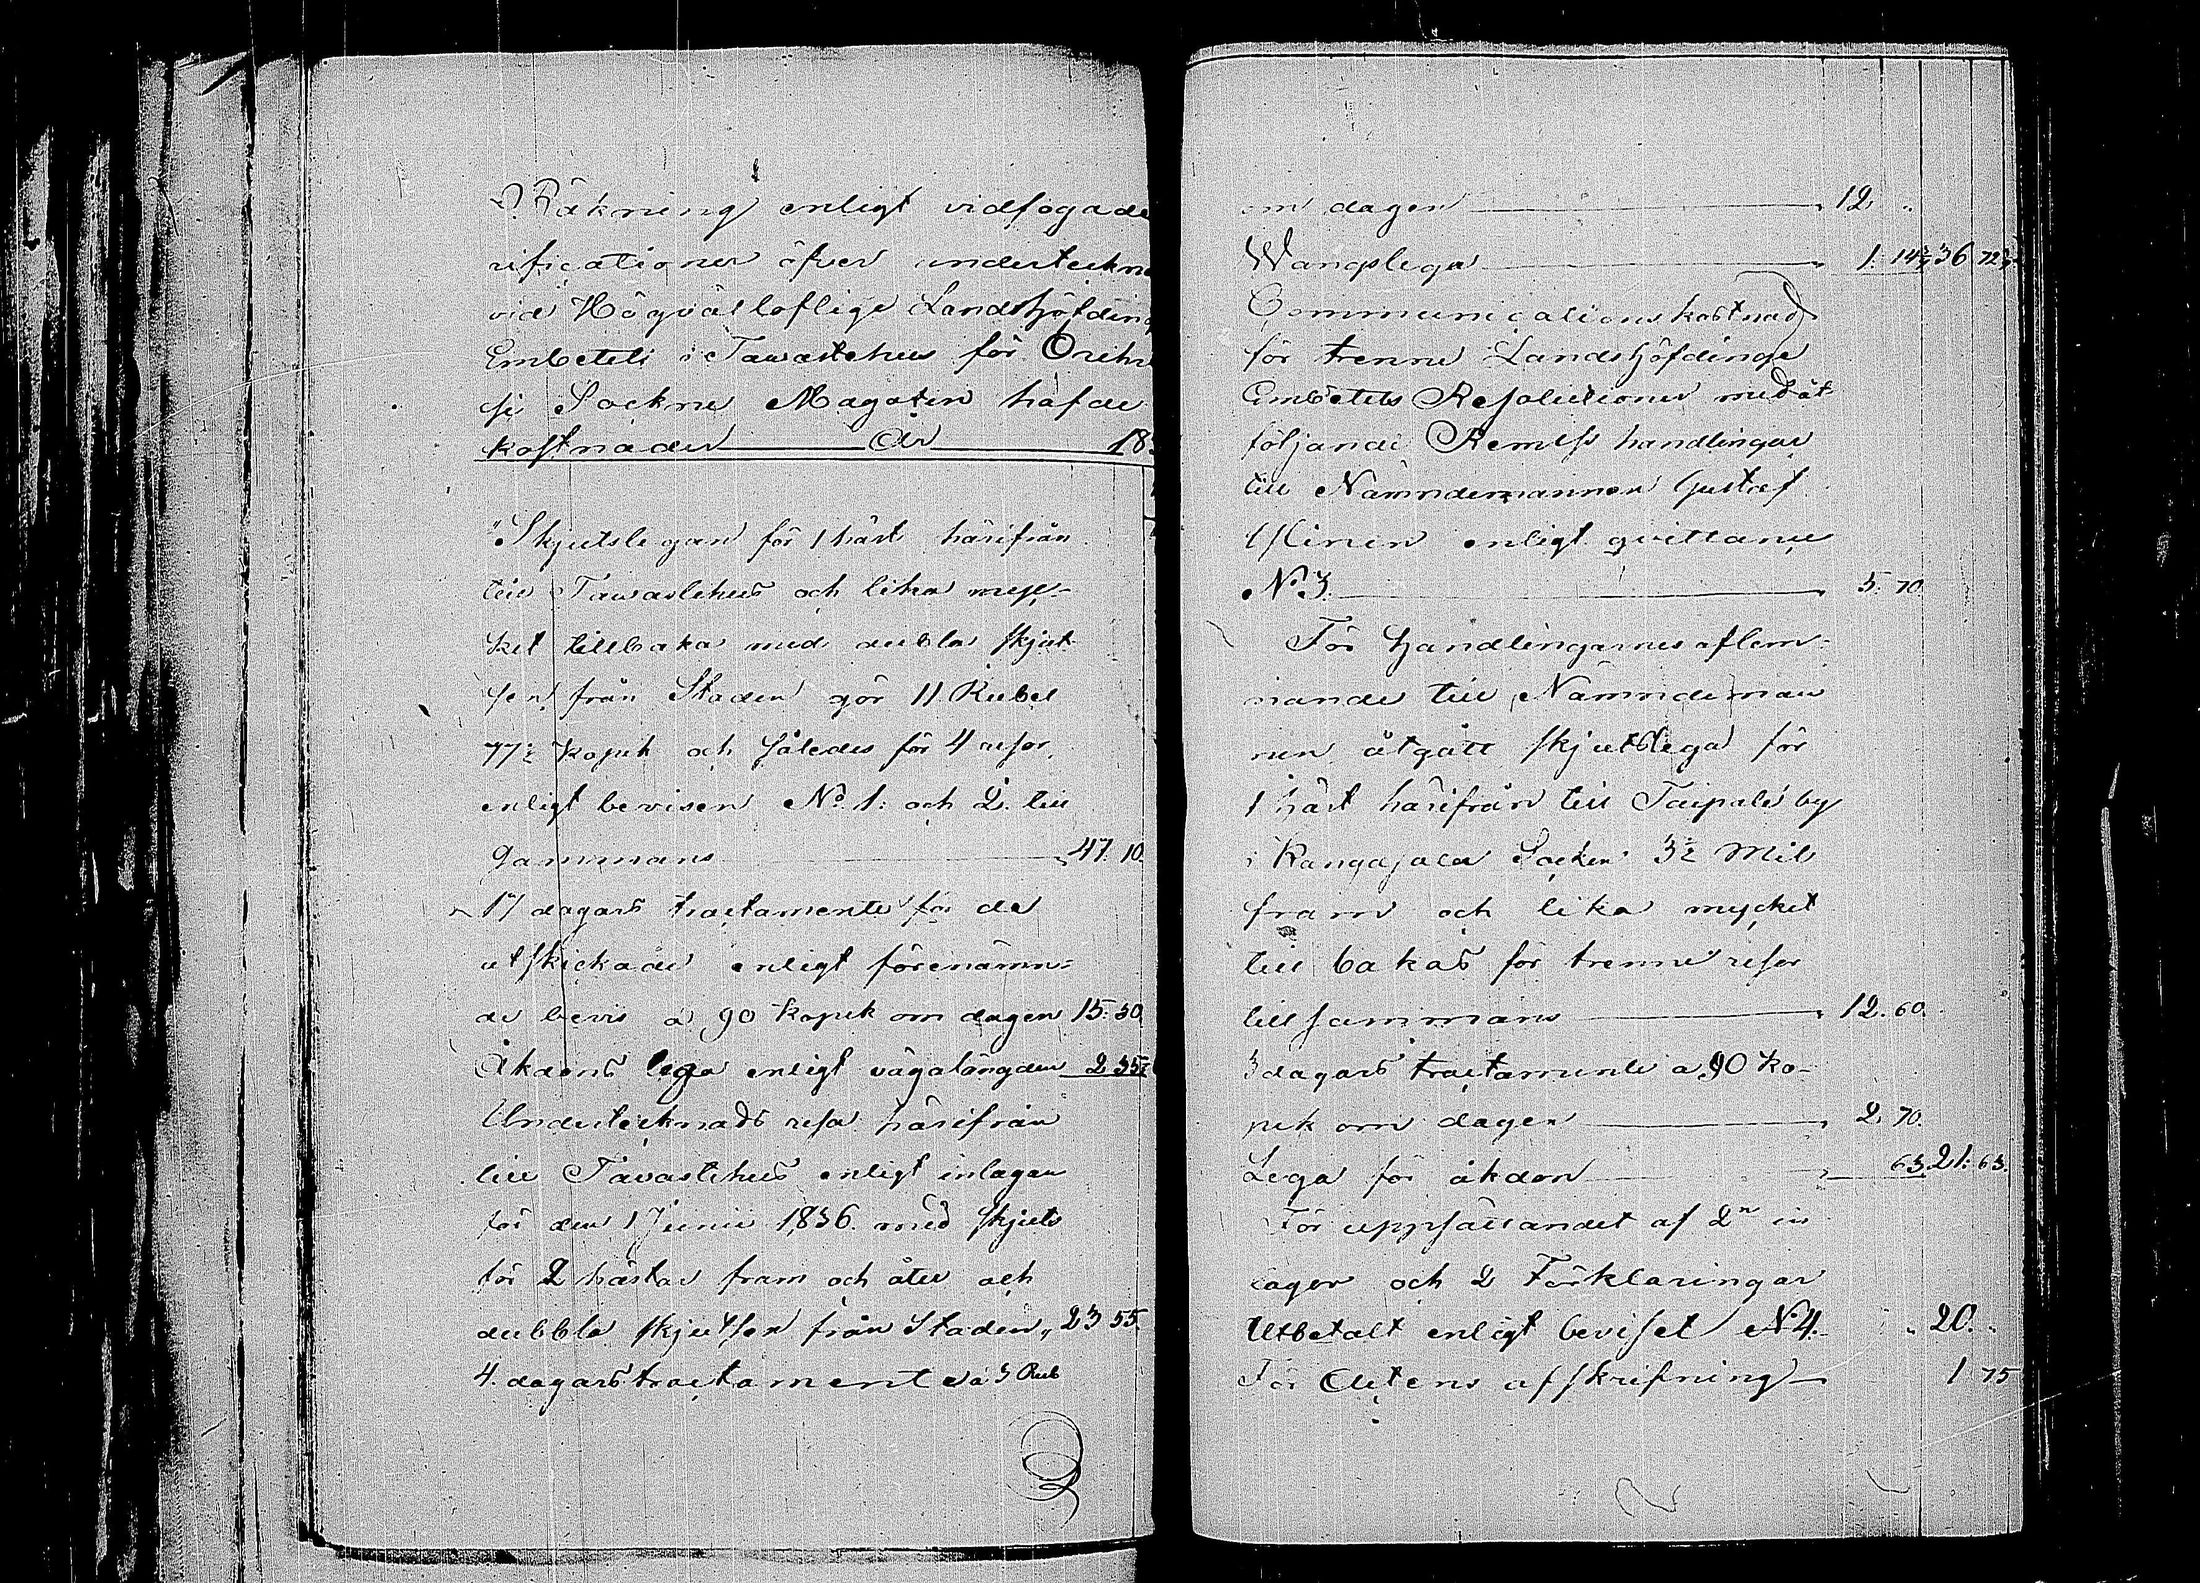 Räkning enligt vidfogade
rificationer öfver undertekne
vid Högvälloflige Landshöfding
Embetet i Tawastehus för Orihve
si Sockne Magatin hafde
kostnader År 18
Skjutslegan för 1 häst härifrån
till Tawastehus och lika myc-
ket tillbaka med dubla skjut-
sen från Staden gör 11 Rubel
77½ Kopek och således för 4 resor
enligt bevisen No. 1: och 2. till
sammans 47. 10.
17 dagars tractamente för de
utskickade enligt förenämn=
de bevis a 90 Kopek om dagen 15. 30
Åkdons lega enligt vägalängden 2 35½
Undertecknads resa härifrån
till Tavastehus enligt inlagan
för den 1 Junii 1836. med skjuts
för 2 hästar fram och åter och
dubbla skjutsen från Staden, 23 55.
4. dagars tractamente a 3 Rub
om dagen 12. „
Wangslega 1. 14½ 36 72½
Communications kostnad
för trenne Landshöfdinge
Embetets Resolutioner med åt
följande Remiss handlingar
till Nämndemannen Gustaf
enligt qvittance
No. 3. 5. 70
För handlingarnes aflem=
nande till Nämndeman
nen åtgått skjutslega för
1 häst härifrån till Taipale by
i Kangasala Socken 3½ Mil
fram och lika mycket
till bakas för trenne resor
tillsammans 12. 60.
3 dagars tractamente a 90 Ko-
pek om dagen 2. 70.
Lega för åkdon 63. 21. 63.
För uppsättandet af 2ne in
lagor och 2 Förklaringar
Utbetalt enligt beviset N4. „ 20. „
För Actens afskrifning 1 75